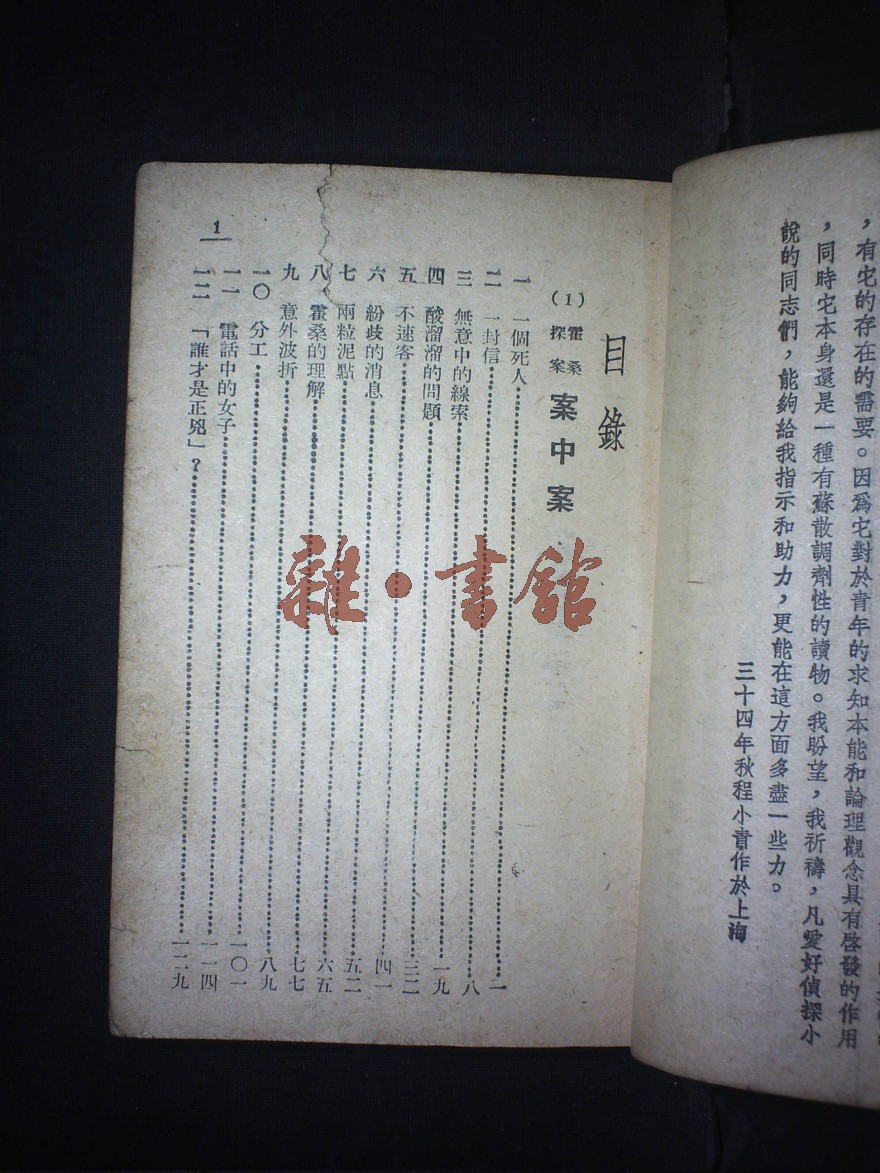 ，有它的存在的需要。因爲它對於青年的求知本能和論理觀念具有啓發的作用
，同時它本身還是一種有蘇散調劑性的讀物。我盼望，我祈禱，凡愛好偵探小
說的同志們，能夠給我指示和助力，更能在這方面多盡一些力。
三十四年秋程小青作於上海
目錄
（1）霍桑探案 案中案
一 一個死人……一
二 一封信……八
三 無意中的線索……一九
四 酸溜溜的問題……三二
五 不速客……四一
六 紛歧的消息……五二
七 兩粒泥點……六五
八 霍桑的理解……七七
九 意外波折……八九
一〇 分工……一〇一
一一 電話中的女子……一一四
一二 「誰才是正兇」？……一二九
1
雜·書館